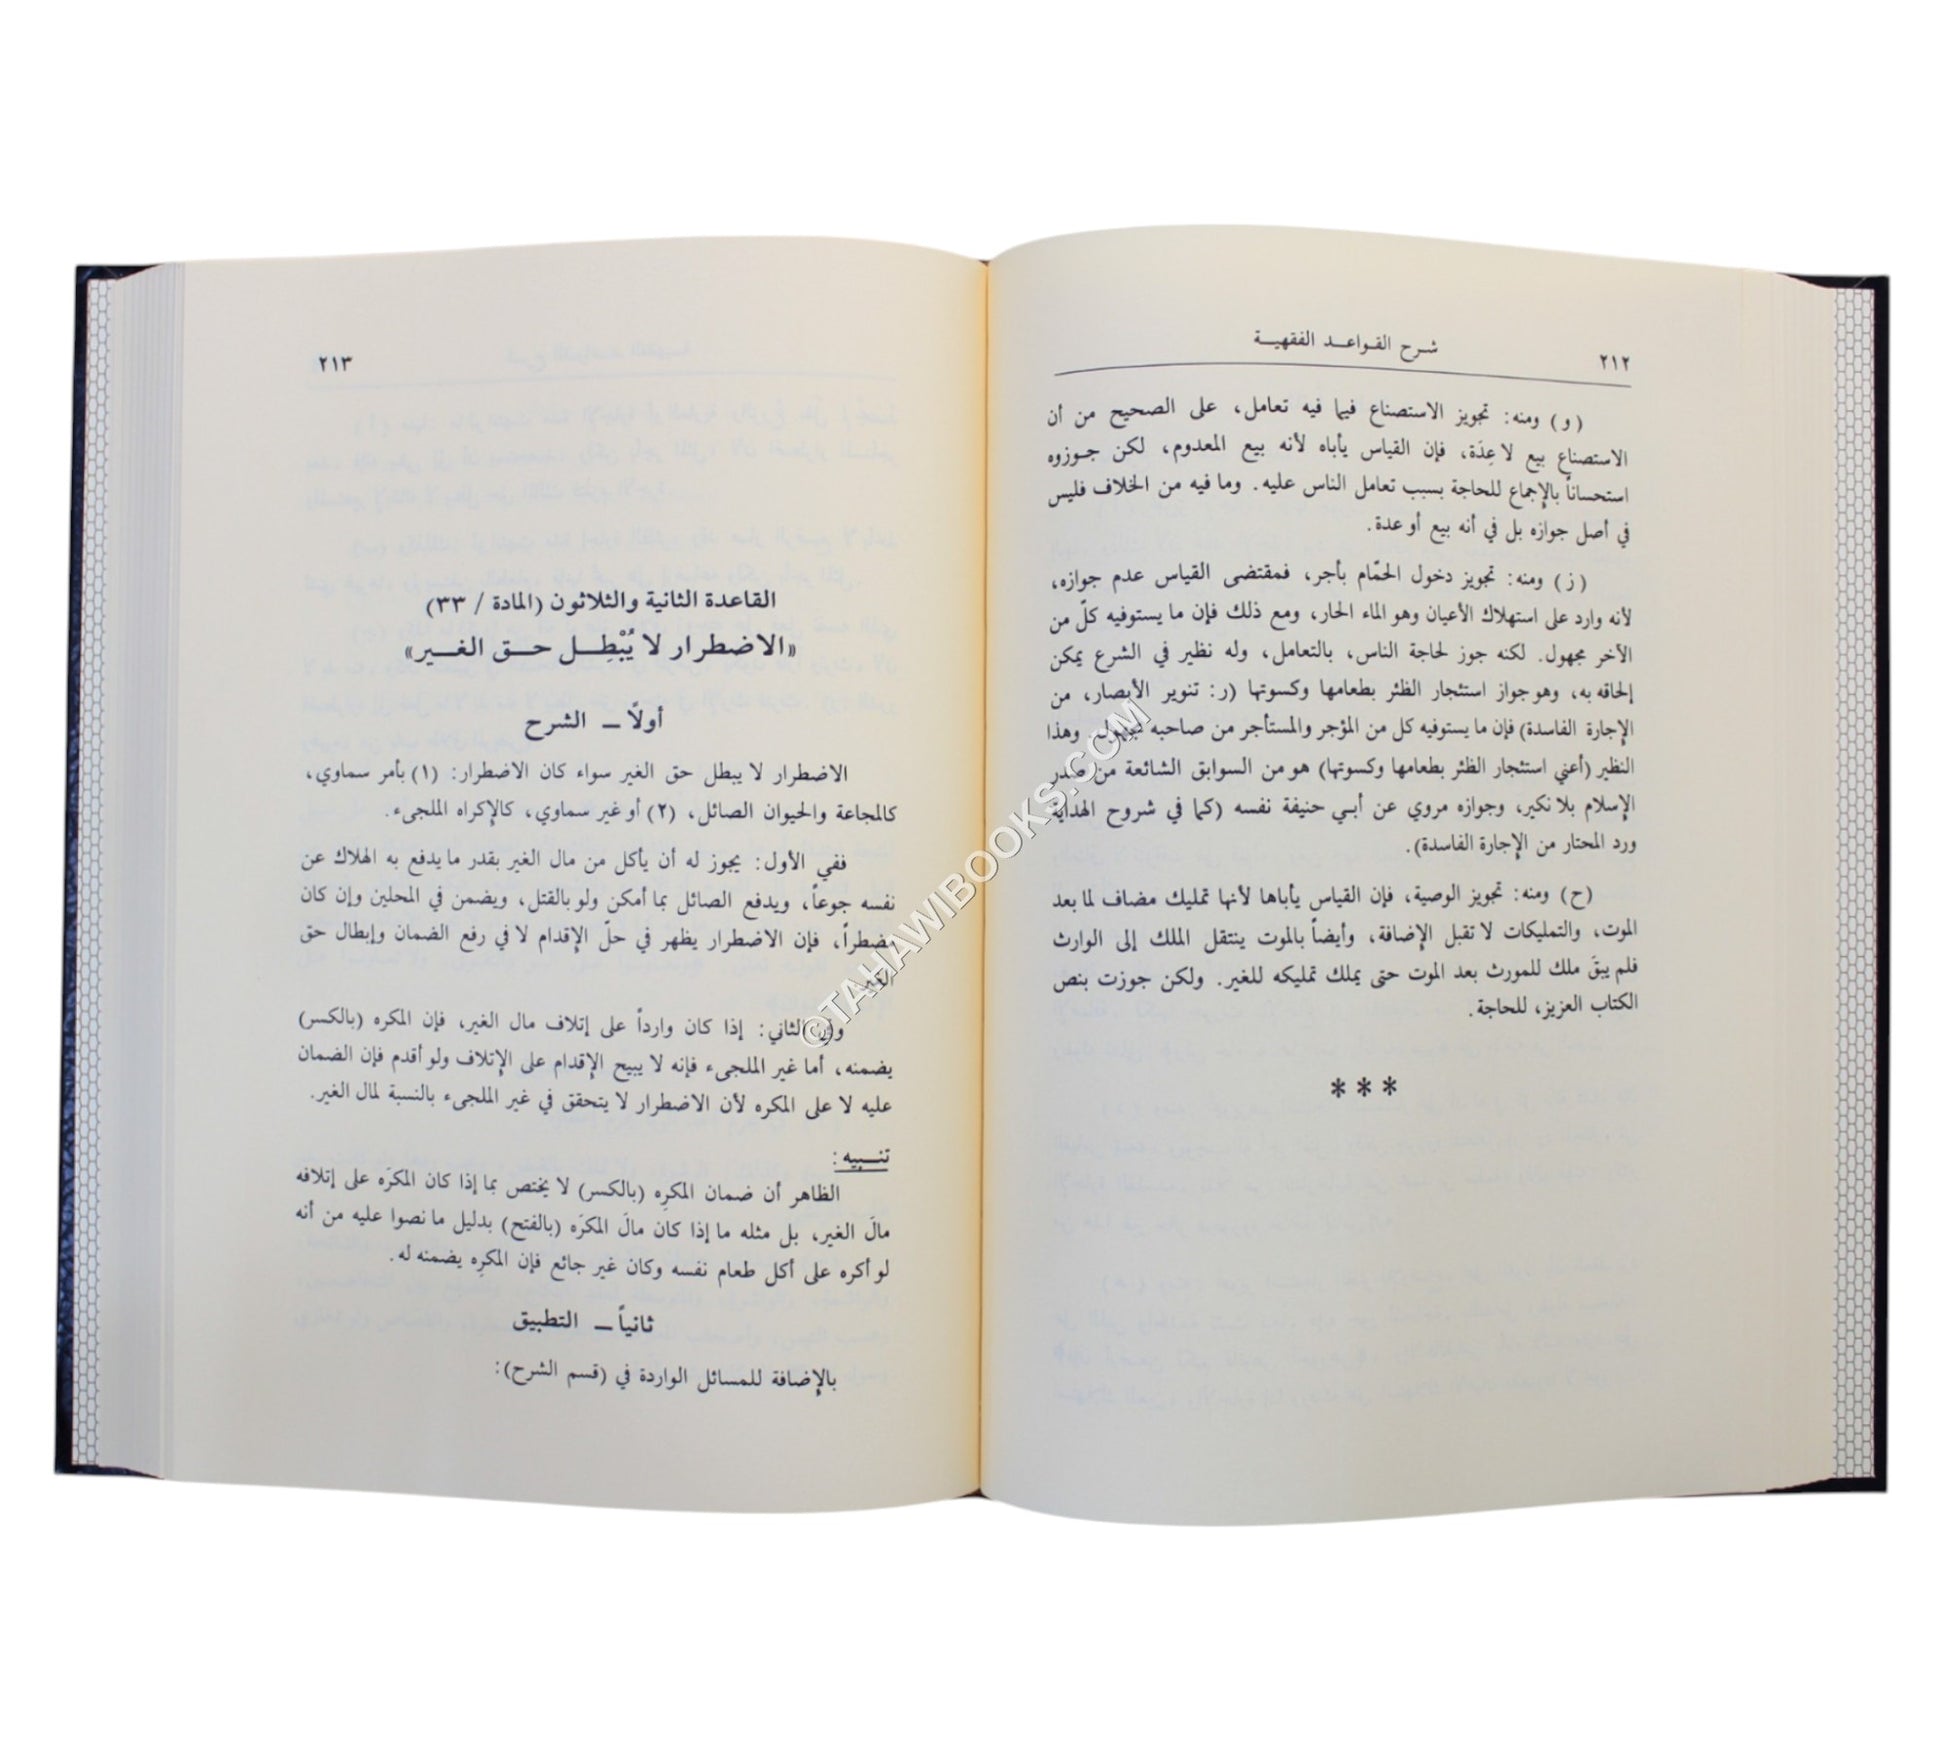 شرح القواعد الفقهية
٢١٢
(و) ومنه: تجويز الاستصناع فيما فيه تعامل، على الصحيح من أن
الاستصناع بيع لا عِدَة، فإن القياس يأباه لأنه بيع المعدوم، لكن جوزوه
استحساناً بالإجماع للحاجة بسبب تعامل الناس عليه. وما فيه من الخلاف فليس
في أصل جوازه بل في أنه بيع أو عدة.
(ز) ومنه: تجويز دخول الحمّام بأجر، فمقتضى القياس عدم جوازه،
لأنه وارد على استهلاك الأعيان وهو الماء الحار، ومع ذلك فإن ما يستوفيه كلّ من
الآخر مجهول. لكنه جوز لحاجة الناس، بالتعامل، وله نظير في الشرع يمكن
إلحاقه به، وهو جواز استئجار الظئر بطعامها وكسوتها (ر: تنوير الأبصار، من
الإجارة الفاسدة) فإن ما يستوفيه كل من المؤجر والمستأجر من صاحبه مجهول. وهذا
النظير (أعني استئجار الظئر بطعامها وكسوتها) هو من السوابق الشائعة من صدر
الإسلام بلا نكير، وجوازه مروي عن أبي حنيفة نفسه (كما في شروح الهداية
ورد المحتار من الإجارة الفاسدة).
(ح) ومنه: تجويز الوصية، فإن القياس يأباها لأنها تمليك مضاف لما بعد
الموت، والتمليكات لا تقبل الإضافة، وأيضاً بالموت ينتقل الملك إلى الوارث
فلم يبقَ ملك للمورث بعد الموت حتى يملك تمليكه للغير. ولكن جوزت بنص
الكتاب العزيز، للحاجة.
* * *
٢١٣
القاعدة الثانية والثلاثون (المادة / ٣٣)
«الاضطرار لا يُبْطِل حق الغير»
أولاً ــ الشرح
الاضطرار لا يبطل حق الغير سواء كان الاضطرار: (١) بأمر سماوي،
كالمجاعة والحيوان الصائل، (٢) أو غير سماوي، كالإكراه الملجىء.
ففي الأول: يجوز له أن يأكل من مال الغير بقدر ما يدفع به الهلاك عن
نفسه جوعاً، ويدفع الصائل بما أمكن ولو بالقتل، ويضمن في المحلين وإن كان
مضطراً، فإن الاضطرار يظهر في حلّ الإقدام لا في رفع الضمان وإبطال حق
الغير.
وفي الثاني: إذا كان وارداً على إتلاف مال الغير، فإن المكره (بالكسر)
يضمنه، أما غير الملجىء فإنه لا يبيح الإقدام على الإتلاف ولو أقدم فإن الضمان
عليه لا على المكره لأن الاضطرار لا يتحقق في غير الملجىء بالنسبة لمال الغير.
تنبيه:
الظاهر أن ضمان المكرِه (بالكسر) لا يختص بما إذا كان المكرَه على إتلافه
مالَ الغير، بل مثله ما إذا كان مالَ المكرَه (بالفتح) بدليل ما نصوا عليه من أنه
لو أكره على أكل طعام نفسه وكان غير جائع فإن المكرِه يضمنه له.
ثانياً ــ التطبيق
بالإضافة للمسائل الواردة في (قسم الشرح):
©TAHAWIBOOKS.COM